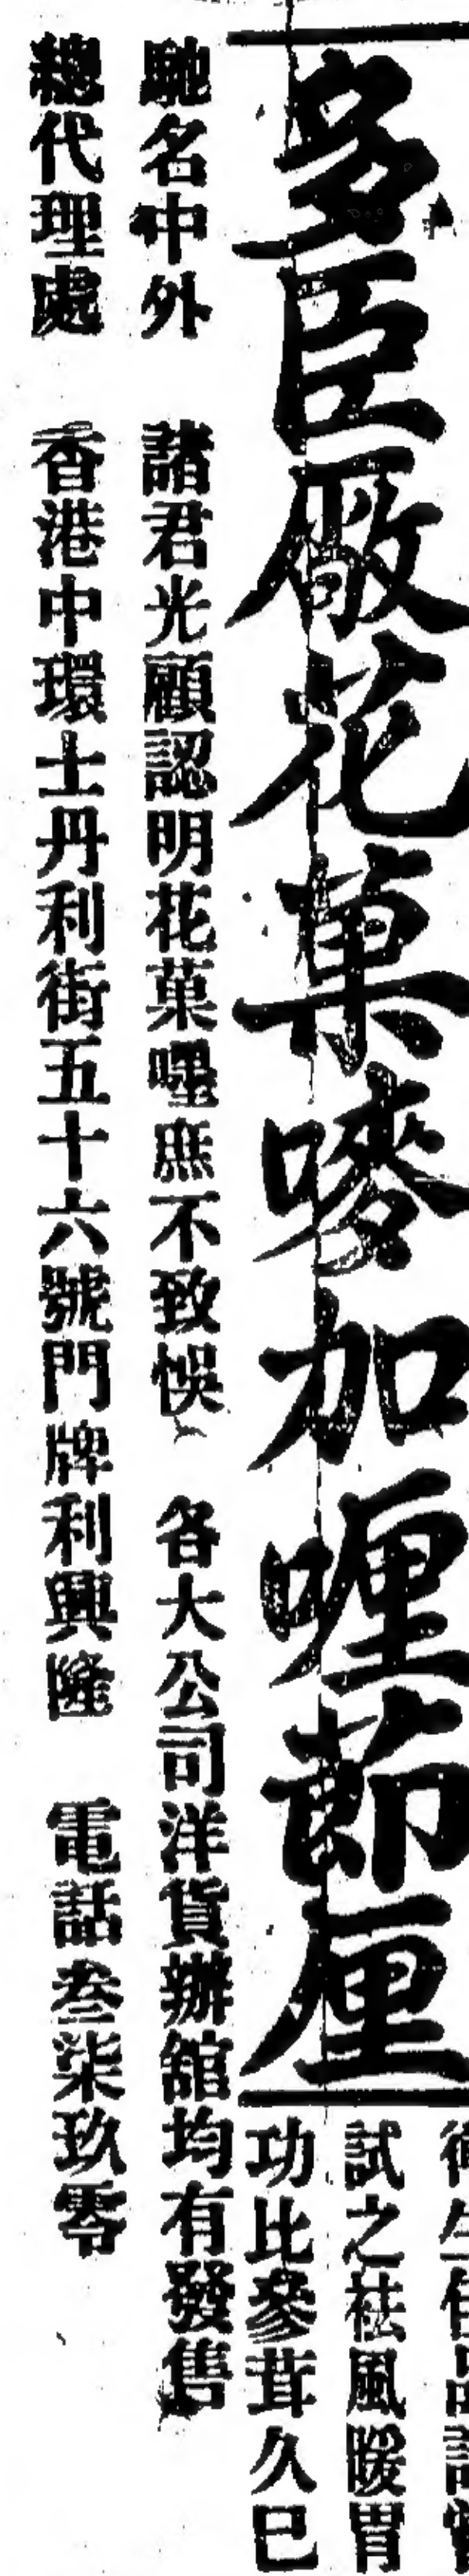 多臣厰花菓嘜加喱莭厘
衛生佳品請嘗
試之祛風暖胃
功比參茸久已
馳名中外　諸君光顧認明花菓嘜庶不致悞　各大公司洋貨辦館均有發售
總代理處　香港中環士丹利街五十六號門牌利興隆　電話叁柒玖零